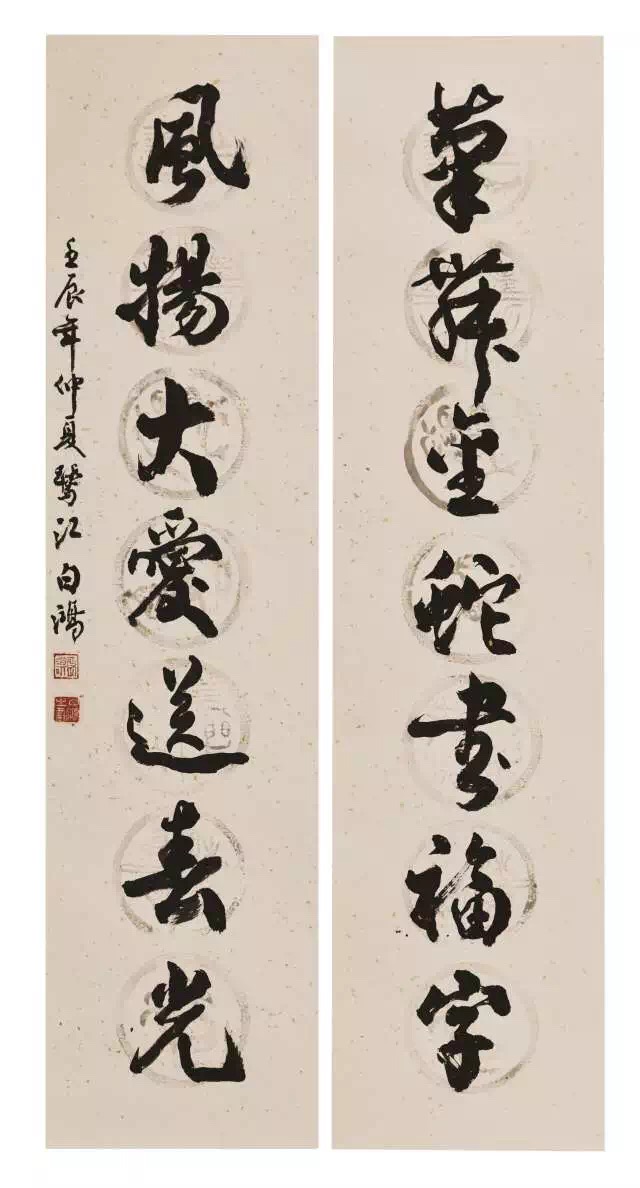 筆舞金蛇書福字
風揚大愛送春光
壬辰年仲夏鷺江白鴻